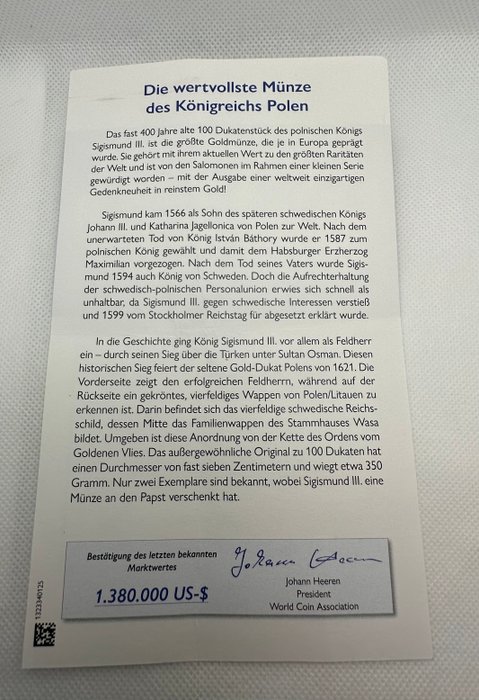 Die wertvollste Münze
des Königreichs Polen
Das fast 400 Jahre alte 100 Dukatenstück des polnischen Königs
Sigismund III. ist die größte Goldmünze, die je in Europa geprägt
wurde. Sie gehört mit ihrem aktuellen Wert zu den größten Raritäten
der Welt und ist von den Salomonen im Rahmen einer kleinen Serie
gewürdigt worden – mit der Ausgabe einer weltweit einzigartigen
Gedenkneuheit in reinstem Gold!
Sigismund kam 1566 als Sohn des späteren schwedischen Königs
Johann III. und Katharina Jagellonica von Polen zur Welt. Nach dem
unerwarteten Tod von König István Báthory wurde er 1587 zum
polnischen König gewählt und damit dem Habsburger Erzherzog
Maximilian vorgezogen. Nach dem Tod seines Vaters wurde Sigis-
mund 1594 auch König von Schweden. Doch die Aufrechterhaltung
der schwedisch-polnischen Personalunion erwies sich schnell als
unhaltbar, da Sigismund III. gegen schwedische Interessen verstieß
und 1599 vom Stockholmer Reichstag für abgesetzt erklärt wurde.
In die Geschichte ging König Sigismund III. vor allem als Feldherr
ein – durch seinen Sieg über die Türken unter Sultan Osman. Diesen
historischen Sieg feiert der seltene Gold-Dukat Polens von 1621. Die
Vorderseite zeigt den erfolgreichen Feldherrn, während auf der
Rückseite ein gekröntes, vierfeldiges Wappen von Polen/Litauen zu
erkennen ist. Darin befindet sich das vierfeldige schwedische Reichs-
schild, dessen Mitte das Familienwappen des Stammhauses Wasa
bildet. Umgeben ist diese Anordnung von der Kette des Ordens vom
Goldenen Vlies. Das außergewöhnliche Original zu 100 Dukaten hat
einen Durchmesser von fast sieben Zentimetern und wiegt etwa 350
Gramm. Nur zwei Exemplare sind bekannt, wobei Sigismund III. eine
Münze an den Papst verschenkt hat.
Bestätigung des letzten bekannten
Marktwertes
1.380.000 US-$
Johann Heeren
Johann Heeren
President
World Coin Association
1323340125